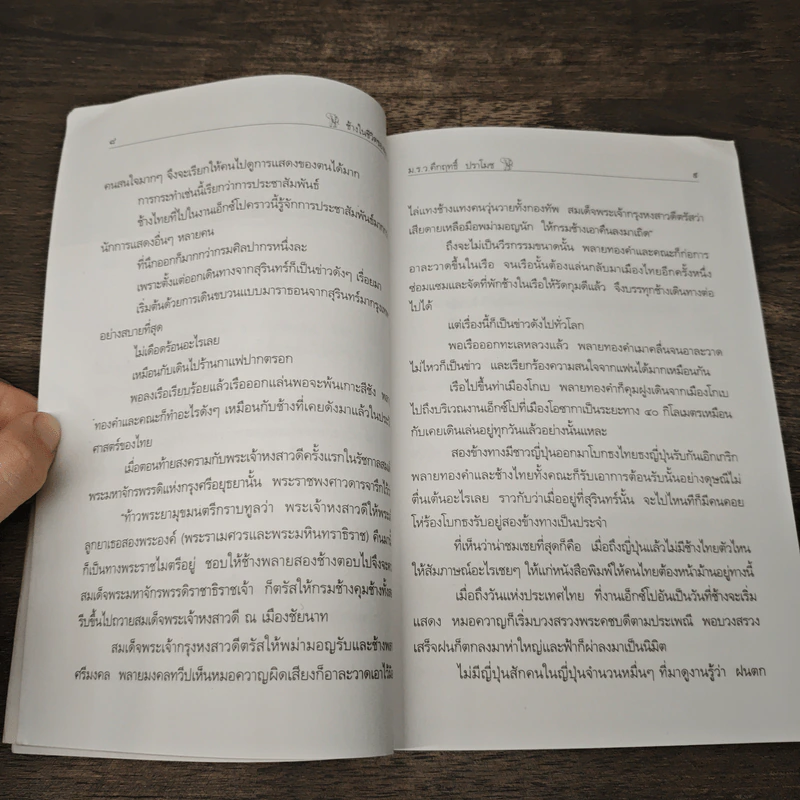 ๘
ช้างในชีวิต
คนสนใจมากๆ จึงจะเรียกให้คนไปดูการแสดงของตนได้มาก
การกระทำเช่นนี้เรียกว่าการประชาสัมพันธ์
ช้างไทยที่ไปในงานเอ็กซ์โปคราวนี้รู้จักการประชาสัมพันธ์
นักการแสดงอื่นๆ หลายคน
ที่นึกออกก็มากกว่ากรมศิลปากรหนึ่งละ
เพราะตั้งแต่ออกเดินทางจากสุรินทร์ก็เป็นข่าวดังๆ เรื่อยมา
เริ่มต้นด้วยการเดินขบวนแบบมาราธอนจากสุรินทร์มากรุงเทพ
อย่างสบายที่สุด
ไม่เดือดร้อนอะไรเลย
เหมือนกับเดินไปร้านกาแฟปากตรอก
พอลงเรือเรียบร้อยแล้วเรือออกแล่นพอจะพ้นเกาะสีชัง
ทองคำและคณะก็ทำอะไรดังๆ เหมือนกับช้างที่เคยดังมาแล้วในประวั
ศาสตร์ของไทย
เมื่อตอนท้ายสงครามกับพระเจ้าหงสาวดีครั้งแรกในรัชกาลสมเ
พระมหาจักรพรรดิแห่งกรุงศรีอยุธยานั้น พระราชพงศาวดารจารึกไว้
"ท้าวพระยามุขมนตรีกราบทูลว่า พระเจ้าหงสาวดีให้พระ
ลูกยาเธอสองพระองค์ (พระราเมศวรและพระมหินทราธิราช) คืนมา
ก็เป็นทางพระราชไมตรีอยู่ ชอบให้ช้างพลายสองช้างตอบไปจึงจะ
สมเด็จพระมหาจักรพรรดิราชาธิราชเจ้า ก็ตรัสให้กรมช้างคุมช้างทั้ง
รีบขึ้นไปถวายสมเด็จพระเจ้าหงสาวดี ณ เมืองชัยนาท
สมเด็จพระเจ้ากรุงหงสาวดีตรัสให้พม่ามอญรับและช้างพล
ศรีมงคล พลายมงคลทวีปเห็นหมอควาญผิดเสียงก็อาละวาดเอาไว้
ม.ร.ว.คึกฤทธิ์ ปราโมช
๙
ไล่แทงช้างแทงคนวุ่นวายทั้งกองทัพ สมเด็จพระเจ้ากรุงหงสาวดีตรัสว่า
เสียดายเหลือมือพม่ามอญนัก ให้กรมช้างเอาคืนลงมาเถิด"
ถึงจะไม่เป็นวีรกรรมขนาดนั้น พลายทองคำและคณะก็ก่อการ
อาละวาดขึ้นในเรือ จนเรือนั้นต้องแล่นกลับมาเมืองไทยอีกครั้งหนึ่ง
ซ่อมแซมและจัดที่พักช้างในเรือให้รัดกุมดีแล้ว จึงบรรทุกช้างเดินทางต่อ
ไปได้
แต่เรื่องนี้ก็เป็นข่าวดังไปทั่วโลก
พอเรือออกทะเลหลวงแล้ว พลายทองคำเมาคลื่นจนอาละวาด
ไม่ไหวก็เป็นข่าว และเรียกร้องความสนใจจากแฟนได้มากเหมือนกัน
เรือไปขึ้นท่าเมืองโกเบ พลายทองคำก็คุมฝูงเดินจากเมืองโกเบ
ไปถึงบริเวณงานเอ็กซ์โปที่เมืองโอซากาเป็นระยะทาง ๔๐ กิโลเมตรเหมือน
กับเคยเดินเล่นอยู่ทุกวันแล้วอย่างนั้นแหละ
สองข้างทางมีชาวญี่ปุ่นออกมาโบกธงไทยธงญี่ปุ่นรับกันเอิกเกริก
พลายทองคำและช้างไทยทั้งคณะก็รับเอาการต้อนรับนั้นอย่างดุษณีไม่
ตื่นเต้นอะไรเลย ราวกับว่าเมื่ออยู่ที่สุรินทร์นั้น จะไปไหนทีก็มีคนคอย
โห่ร้องโบกธงรับอยู่สองข้างทางเป็นประจำ
ที่เห็นว่าน่าชมเชยที่สุดก็คือ เมื่อถึงญี่ปุ่นแล้วไม่มีช้างไทยตัวไหน
ให้สัมภาษณ์อะไรเชยๆ ให้แก่หนังสือพิมพ์ให้คนไทยต้องหน้าม้านอยู่ทางนี้
เมื่อถึงวันแห่งประเทศไทย ที่งานเอ็กซ์โปอันเป็นวันที่ช้างจะเริ่ม
แสดง หมอควาญก็เริ่มบวงสรวงพระคชบดีตามประเพณี พอบวงสรวง
เสร็จฝนก็ตกลงมาห่าใหญ่และฟ้าก็ผ่าลงมาเป็นนิมิต
ไม่มีญี่ปุ่นสักคนในญี่ปุ่นจำนวนหมื่นๆ ที่มาดูงานรู้ว่า ฝนตก